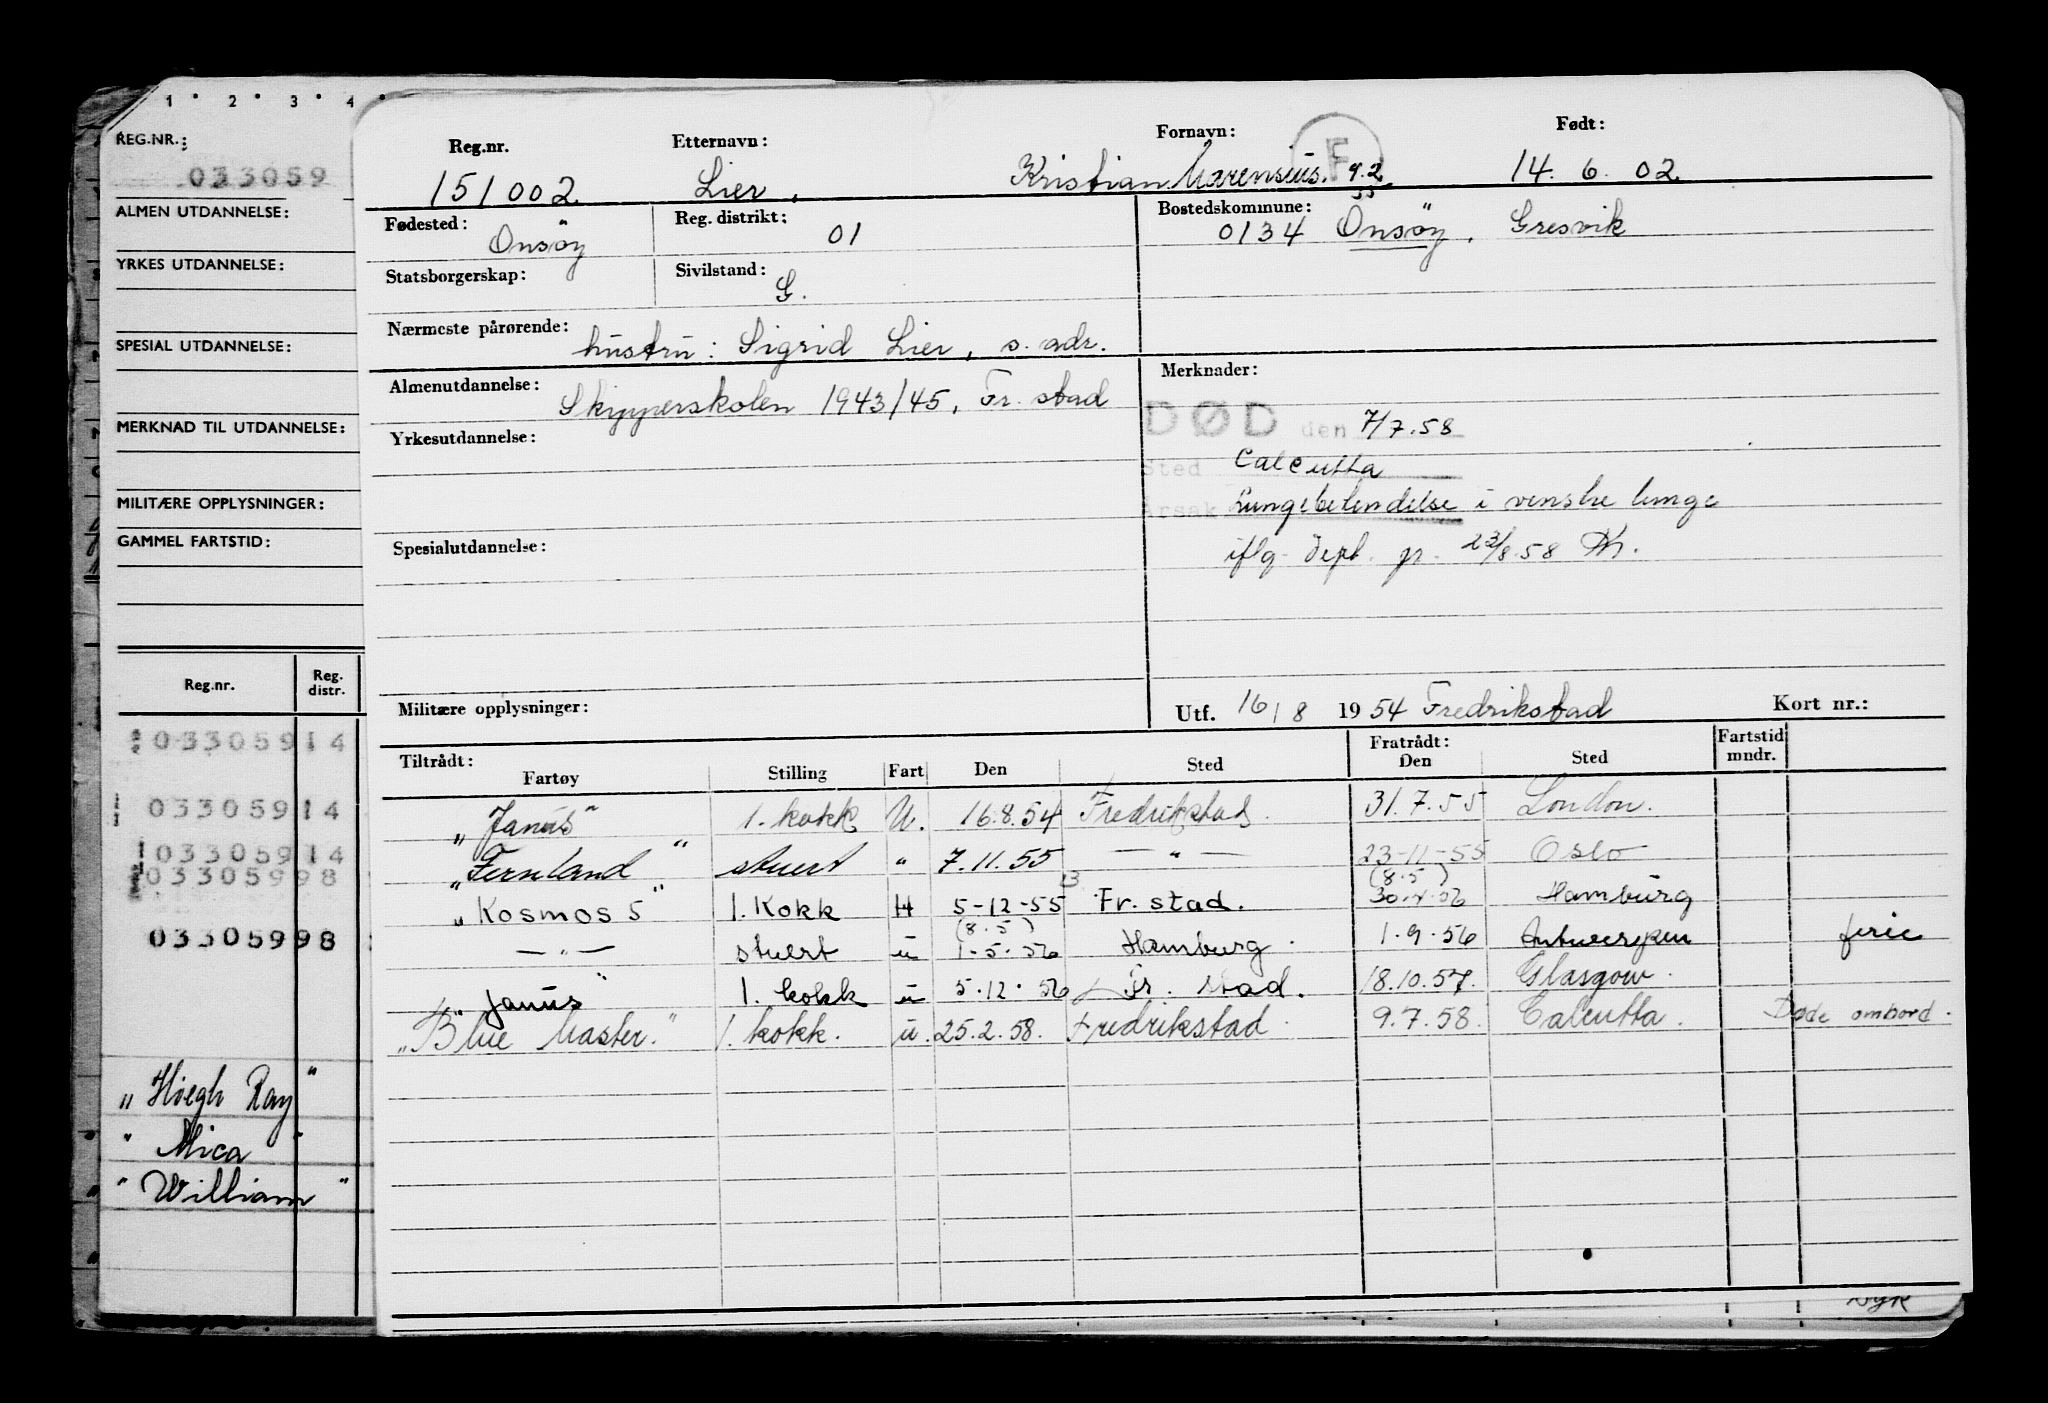 1 · 2 · 3 · 4 ·
REG.NR.:
033059
ALMEN UTDANNELSE:
YRKES UTDANNELSE:
SPESIAL UTDANNELSE:
MERKNAD TIL UTDANNELSE:
MILITÆRE OPPLYSNINGER:
GAMMEL FARTSTID:
Reg.nr. Reg. distr.
03305914
03305914
03305914
03305998
03305998
„Høegh Ray"
" Mica "
" William "
Reg.nr. Etternavn: Fornavn: F Født:
151002 Lier, Kristian Marensius. 14. 6. 02.
Fødested: Onsøy Reg. distrikt: 01 Bostedskommune: 0134 Onsøy, Gresvik
Statsborgerskap: Sivilstand: G.
Nærmeste pårørende: hustru: Sigrid Lier, s. adr.
Almenutdannelse: Skipperskolen 1943/45, Fr. stad Merknader:
DØD den 7/7.58
Yrkesutdannelse: Sted Calcutta
Årsak Lungebetendelse i venstre lunge
Spesialutdannelse: iflg. 23/8.58
Militære opplysninger: Utf. 16/8 1954 Fredrikstad Kort nr.:
Tiltrådt: Fratrådt: Fartstid
Fartøy Stilling Fart Den Sted Den Sted mndr.
„Janus" 1. kokk U. 16.8.54 Fredrikstad. 31.7.55 London.
„Fernland" stuert " 7.11.55 — " — 23-11-55 Oslo
„Kosmos 5" 1. Kokk H 5-12-55 Fr. stad. (8.5) 30.4.56 Hamburg
— " — stuert u (8.5) 1.5.56 Hamburg. 1.9.56 Antwerpen ferie
„Janus" 1. kokk u 5.12.56 Fr. stad. 18.10.57. Glasgow.
„Blue Master." 1. kokk. u. 25.2.58. Fredrikstad. 9.7.58. Calcutta. Døde ombord.